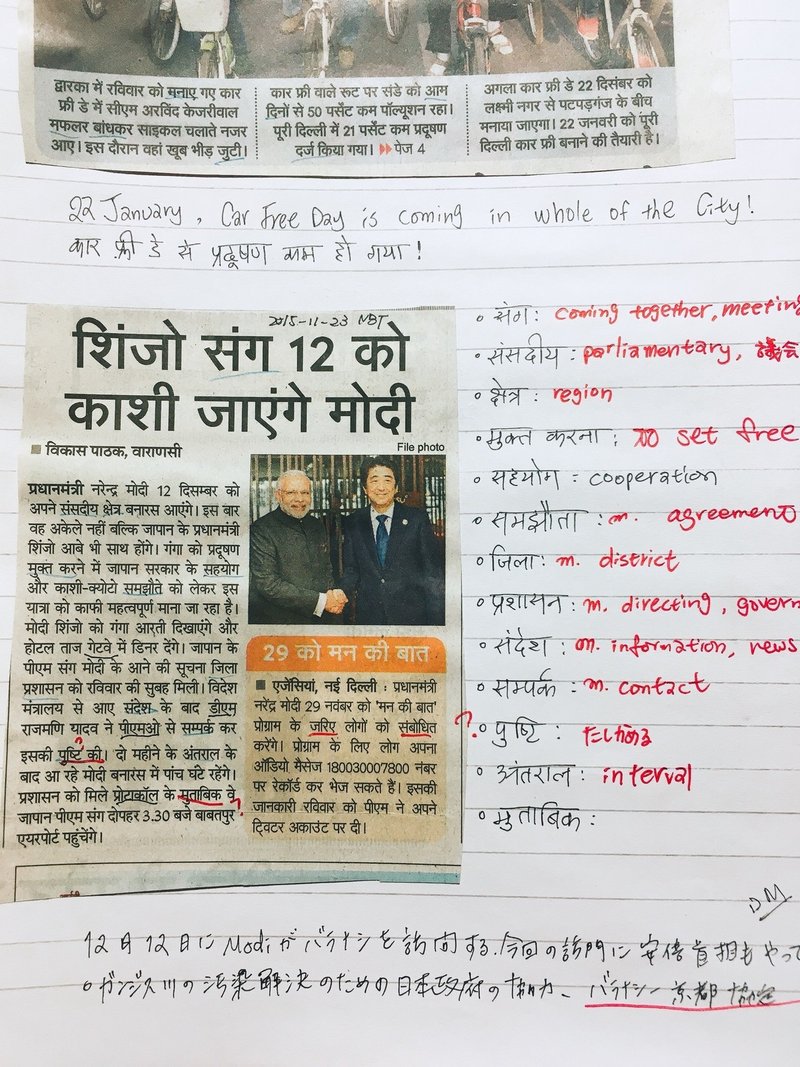 द्वारका में रविवार को मनाए गए कार
फ्री डे में सीएम अरविंद केजरीवाल
मफलर बांधकर साइकल चलाते नजर
आए। इस दौरान वहां खूब भीड़ जुटी।
कार फ्री वाले रूट पर संडे को आम
दिनों से 50 पर्सेंट कम पॉल्यूशन रहा।
पूरी दिल्ली में 21 पर्सेंट कम प्रदूषण
दर्ज किया गया। ▶▶ पेज 4
अगला कार फ्री डे 22 दिसंबर को
लक्ष्मी नगर से पटपड़गंज के बीच
मनाया जाएगा। 22 जनवरी को पूरी
दिल्ली कार फ्री बनाने की तैयारी है।
22 January, Car Free Day is coming in whole of the City!
कार फ़्री डे से प्रदूषण कम हो गया!
2015-11-23 NBT
शिंजो संग 12 को
काशी जाएंगे मोदी
■ विकास पाठक, वाराणसी
File photo
प्रधानमंत्री नरेन्द्र मोदी 12 दिसम्बर को
अपने संसदीय क्षेत्र बनारस आएंगे। इस बार
वह अकेले नहीं बल्कि जापान के प्रधानमंत्री
शिंजो आबे भी साथ होंगे। गंगा को प्रदूषण
मुक्त करने में जापान सरकार के सहयोग
और काशी-क्योटो समझौते को लेकर इस
यात्रा को काफी महत्वपूर्ण माना जा रहा है।
मोदी शिंजो को गंगा आरती दिखाएंगे और
होटल ताज गेटवे में डिनर देंगे। जापान के
पीएम संग मोदी के आने की सूचना जिला
प्रशासन को रविवार की सुबह मिली। विदेश
मंत्रालय से आए संदेश के बाद डीएम
राजमणि यादव ने पीएमओ से सम्पर्क कर
इसकी पुष्टि की। दो महीने के अंतराल के
बाद आ रहे मोदी बनारस में पांच घंटे रहेंगे।
प्रशासन को मिले प्रोटाकॉल के मुताबिक वे
जापान पीएम संग दोपहर 3.30 बजे बाबतपुर
एयरपोर्ट पहुंचेंगे।
29 को मन की बात
■ एजेंसियां, नई दिल्ली : प्रधानमंत्री
नरेंद्र मोदी 29 नवंबर को 'मन की बात'
प्रोग्राम के जरिए लोगों को संबोधित
करेंगे। प्रोग्राम के लिए लोग अपना
ऑडियो मैसेज 180030007800 नंबर
पर रेकॉर्ड कर भेज सकते हैं। इसकी
जानकारी रविवार को पीएम ने अपने
ट्विटर अकाउंट पर दी।
संग: coming together, meeting
संसदीय: parliamentary,
क्षेत्र: region
मुक्त करना: to set free
सहयोग: cooperation
समझौता: m. agreement
जिला: m. district
प्रशासन: m. directing, govern
संदेश: m. information, news
सम्पर्क: m. contact
? पुष्टि:
अंतराल: interval
मुताबिक:
DM
12月12日にModiがバラナシを訪問する.今回の訪問に安倍首相もやって
ガンジス川の汚染解決のための日本政府の協力、バラナシー京都協定